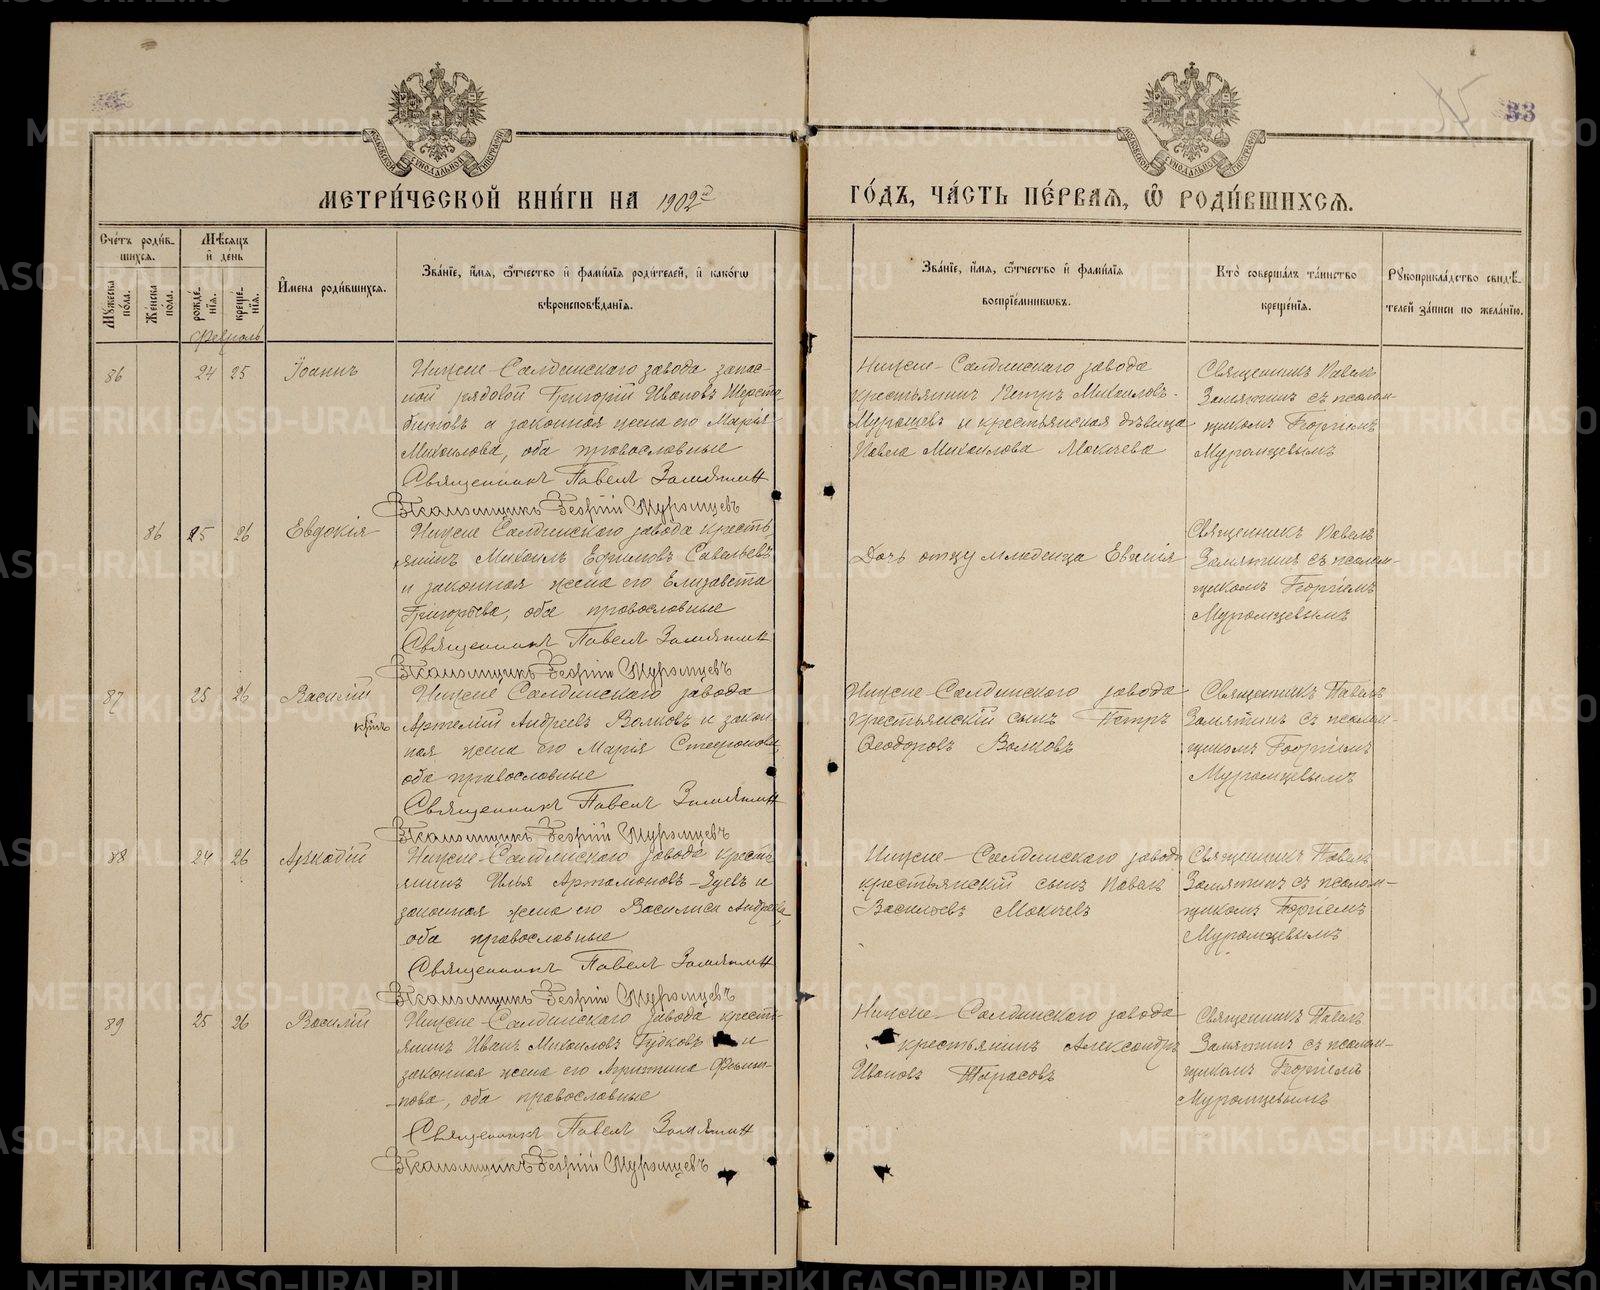 33
МЕТРИ́ЧЕСКОЙ КНИ́ГИ НА 1902й ГО́ДЪ, ЧА́СТЬ ПЕ́РВАѦ, Ѽ РОДИ́ВШИХСѦ.
Сче́тъ роди́в-
шихсѧ.
Мꙋ́жеска по́ла.
Же́нска по́ла.
Мѣ́сѧцъ
и҆ де́нь
рожде́-
нїѧ.
креще́-
нїѧ.
Февраль
И҆мена роди́вшихсѧ.
Зва́нїе, и҆́мѧ, ѻ҆́тчество и҆ фами́лїѧ роди́телей, и҆ како́гѡ
вѣроисповѣ́данїѧ.
Зва́нїе, и҆́мѧ, ѻ҆́тчество и҆ фами́лїѧ
воспрїе́мниковъ.
Кто̀ соверша́лъ та́инство
креще́нїѧ.
Рꙋкоприкла́дство свидѣ́-
телей за́писи по жела́нїю.
86
24 25
Іоаннъ
Нижне-Салдинскаго завода запас-
ной рядовой Григорій Ивановъ Шерсто-
битовъ и законная жена его Марія
Михаилова, оба православные
Священникъ Павелъ Замятин
Псаломщикъ Георгій Муромцевъ
Нижне-Салдинскаго завода
крестьянинъ Петръ Михаиловъ
и крестьянская дѣвица
Павла Михаилова Мокѣева
Священникъ Павелъ
Замятинъ съ псалом-
щикомъ Георгіемъ
Муромцевымъ
86
25 26
Евдокія
Нижне Салдинскаго завода кресть-
янинъ Михаилъ Ефимовъ Савельевъ
и законная жена его Елизавета
Григорьева, оба православные
Священникъ Павелъ Замятин
Псаломщикъ Георгій Муромцевъ
Дочь отцу младенца Евгенія
Священникъ Павелъ
Замятинъ съ псалом-
щикомъ Георгіемъ
Муромцевымъ
87
25 26
Василій
Нижне Салдинскаго завода
крѣнъ Артемій Андреевъ Волковъ и закон-
ная жена его Марія Стефанова,
оба православные
Священникъ Павелъ Замятин
Псаломщикъ Георгій Муромцевъ
Нижне-Салдинскаго завода
крестьянскій сынъ Петръ
Ѳеодоровъ Волковъ
Священникъ Павелъ
Замятинъ съ псалом-
щикомъ Георгіемъ
Муромцевымъ
88
24 26
Аркадій
Нижне-Салдинскаго завода кресть-
янинъ Илья Артамоновъ Зуевъ и
законная жена его Василиса Андреева,
оба православные
Священникъ Павелъ Замятин
Псаломщикъ Георгій Муромцевъ
Нижне-Салдинскаго завода
крестьянскій сынъ Павелъ
Васильевъ Мокѣевъ
Священникъ Павелъ
Замятинъ съ псалом-
щикомъ Георгіемъ
Муромцевымъ
89
25 26
Василій
Нижне-Салдинскаго завода кресть-
янинъ Иванъ Михаиловъ Гудковъ и
законная жена его Агриппина Филип-
пова, оба православные
Священникъ Павелъ Замятин
Псаломщикъ Георгій Муромцевъ
Нижне-Салдинскаго завода
крестьянинъ Александръ
Ивановъ Тарасовъ
Священникъ Павелъ
Замятинъ съ псалом-
щикомъ Георгіемъ
Муромцевымъ
METRIKI.GASO-URAL.RU